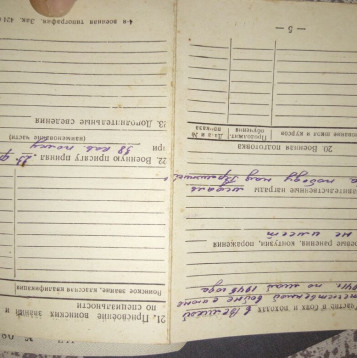 Участие в боях и походах в Великой
течественной войне с июня
941г. по май 1945 года
евые ранения, контузии, поражения
не имеет
вительственные награды медаль
за победу над Германией
20. Военная подготовка
звание школ и курсов
Продолжит. обучения
Дата и № приказа
— 5 —
21. Присвоение воинских званий и
по специальности
Воинское звание, классная квалификация
22. Военную присягу принял 23
при 38 кав полку
(наименование части)
23. Дополнительные сведения
4-я военная типография. Зак. 421